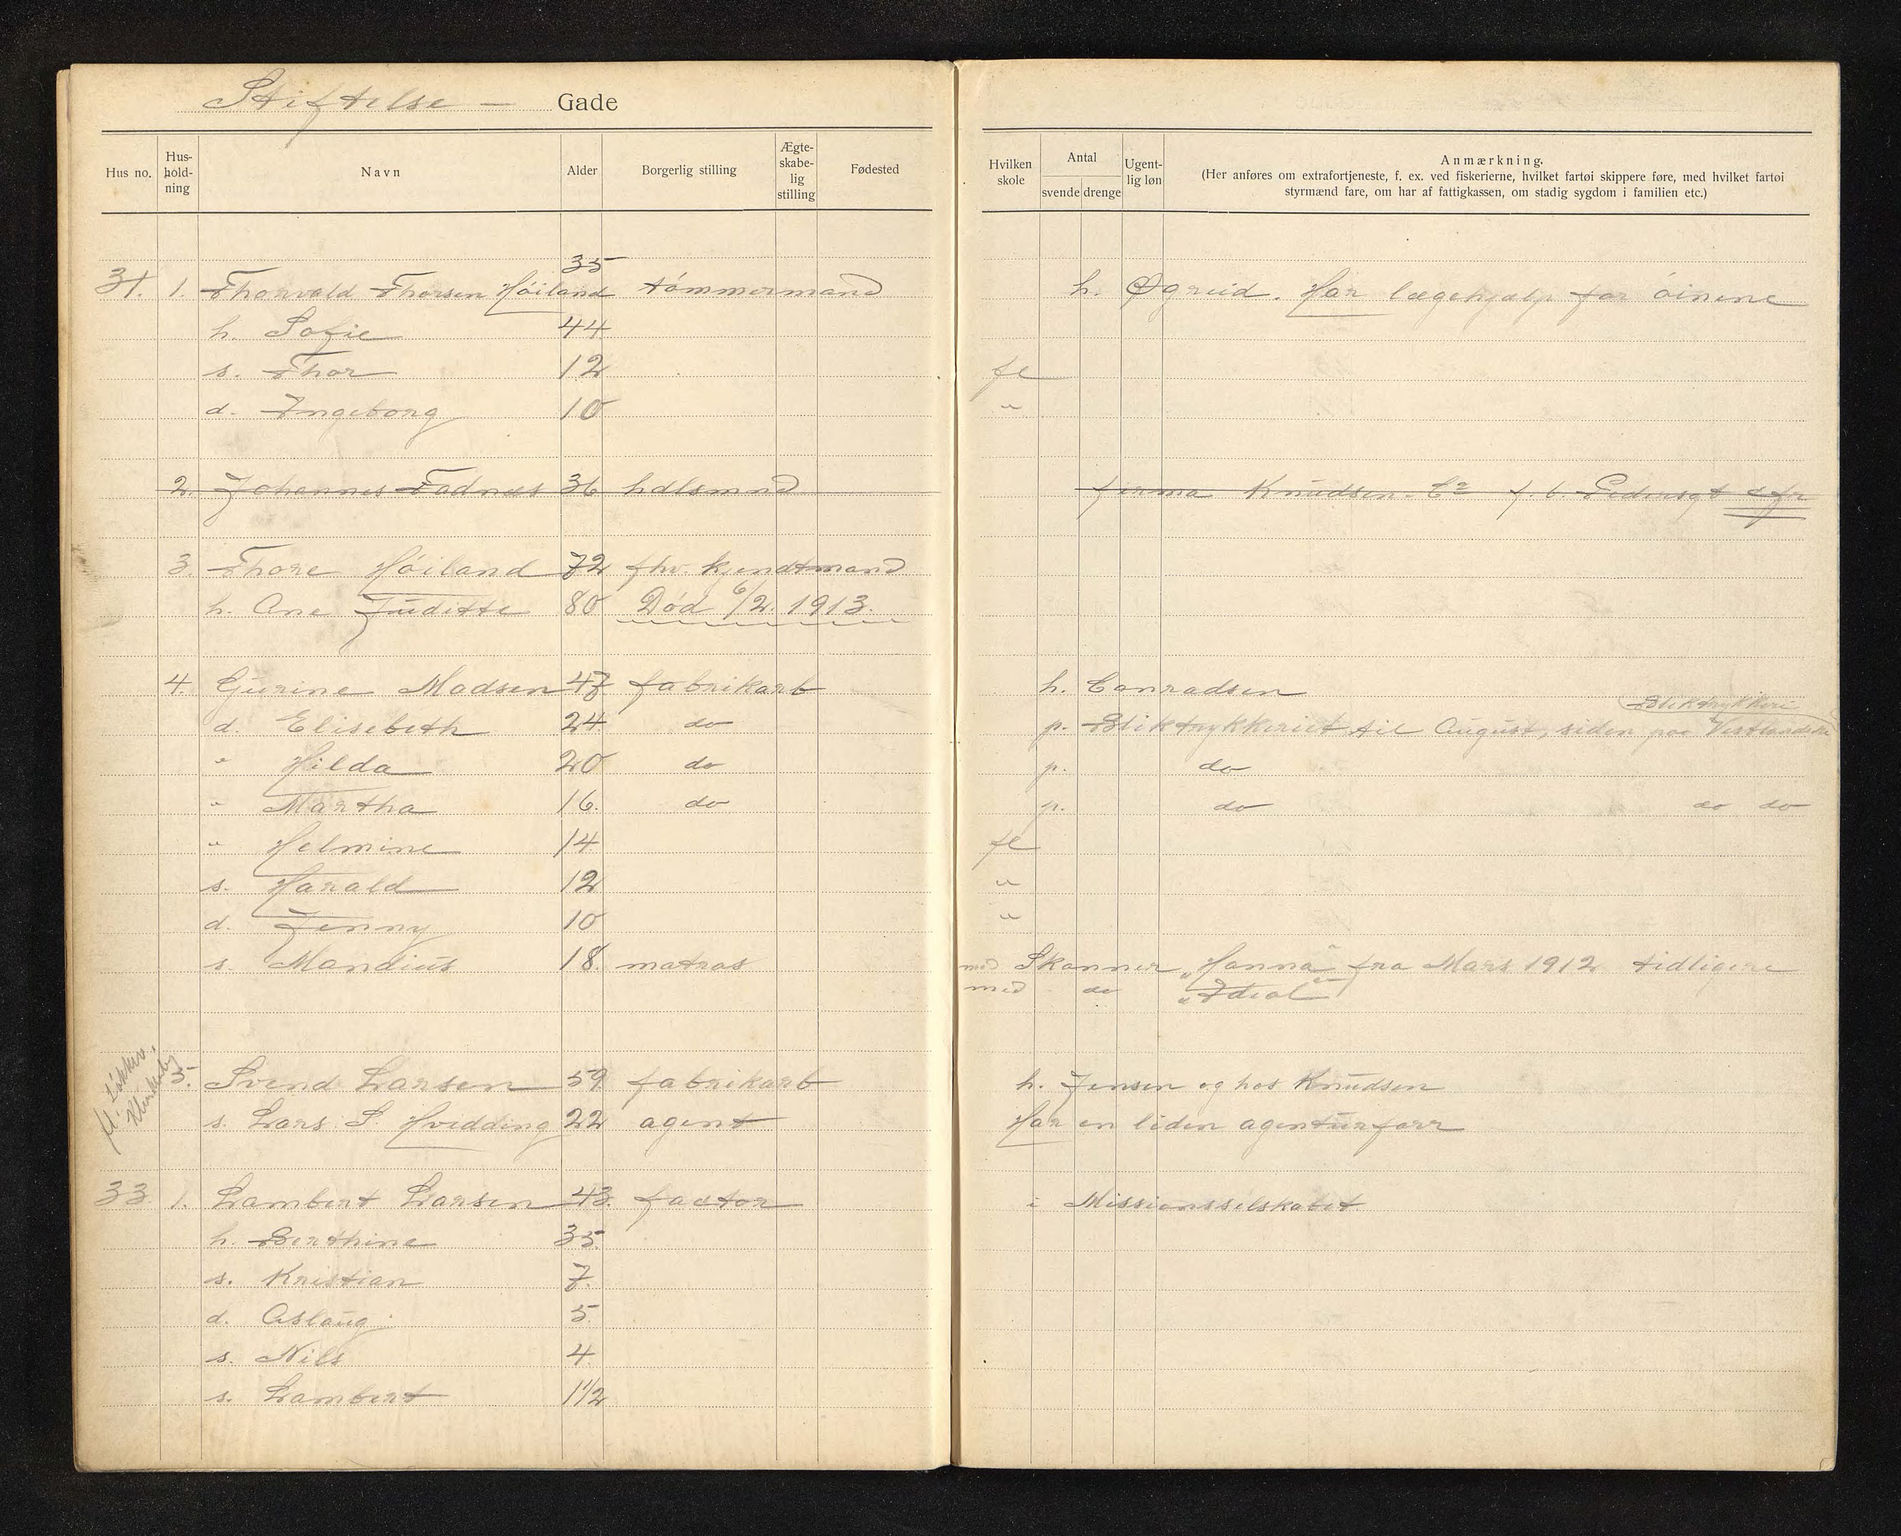 Stiftelse — Gade
Hus no. Hus-hold-ning Navn Alder Borgerlig stilling Ægte-skabe-lig stilling Fødested Hvilken skole Antal svende drenge Ugent-lig løn Anmærkning.
(Her anføres om extrafortjeneste, f. ex. ved fiskerierne, hvilket fartøi skippere føre, med hvilket fartøi
styrmænd fare, om har af fattigkassen, om stadig sygdom i familien etc.)
31. 1. Thorvald Thorsen Høiland 35 tømmermand h. Øgreid. Har lægehjælp for øinene
h. Sofie 44
s. Thor 12 fl
d. Ingeborg 10 "
2. Johannes Fadnes 36 hdlsmnd firma Knudsen & Co f. b. Pedersgt
3. Thore Høiland 72 fhv. kjendtmand
h. Ane Juditte 80 Død 6/2. 1913.
4. Gurine Madsen 47 fabrikarb h. Conradsen
d. Elisebeth 24 do p. Bliktrykkeriet til August, siden paa Vestlandske Bliktrykkeri
" Hilda 20 do p. do
" Martha 16. do p. do do do
" Helmine 14 fl
s. Harald 12 "
d. Jenny 10 "
s. Mandius 18. matros med Skonner "Hanna" fra Mars 1912 tidligere
med do "Ideal"
5. Svend Larsen 59 fabrikarb h. Jensen og hos Knudsen
s. Lars S. Hvidding 22 agent Har en liden agenturforr
33. 1. Lambert Larsen 43. factor i Missionsselskabet
h. Berthine 35
s. Kristian 7.
d. Aslaug 5.
s. Nils 4
s. Lambert 1 1/2